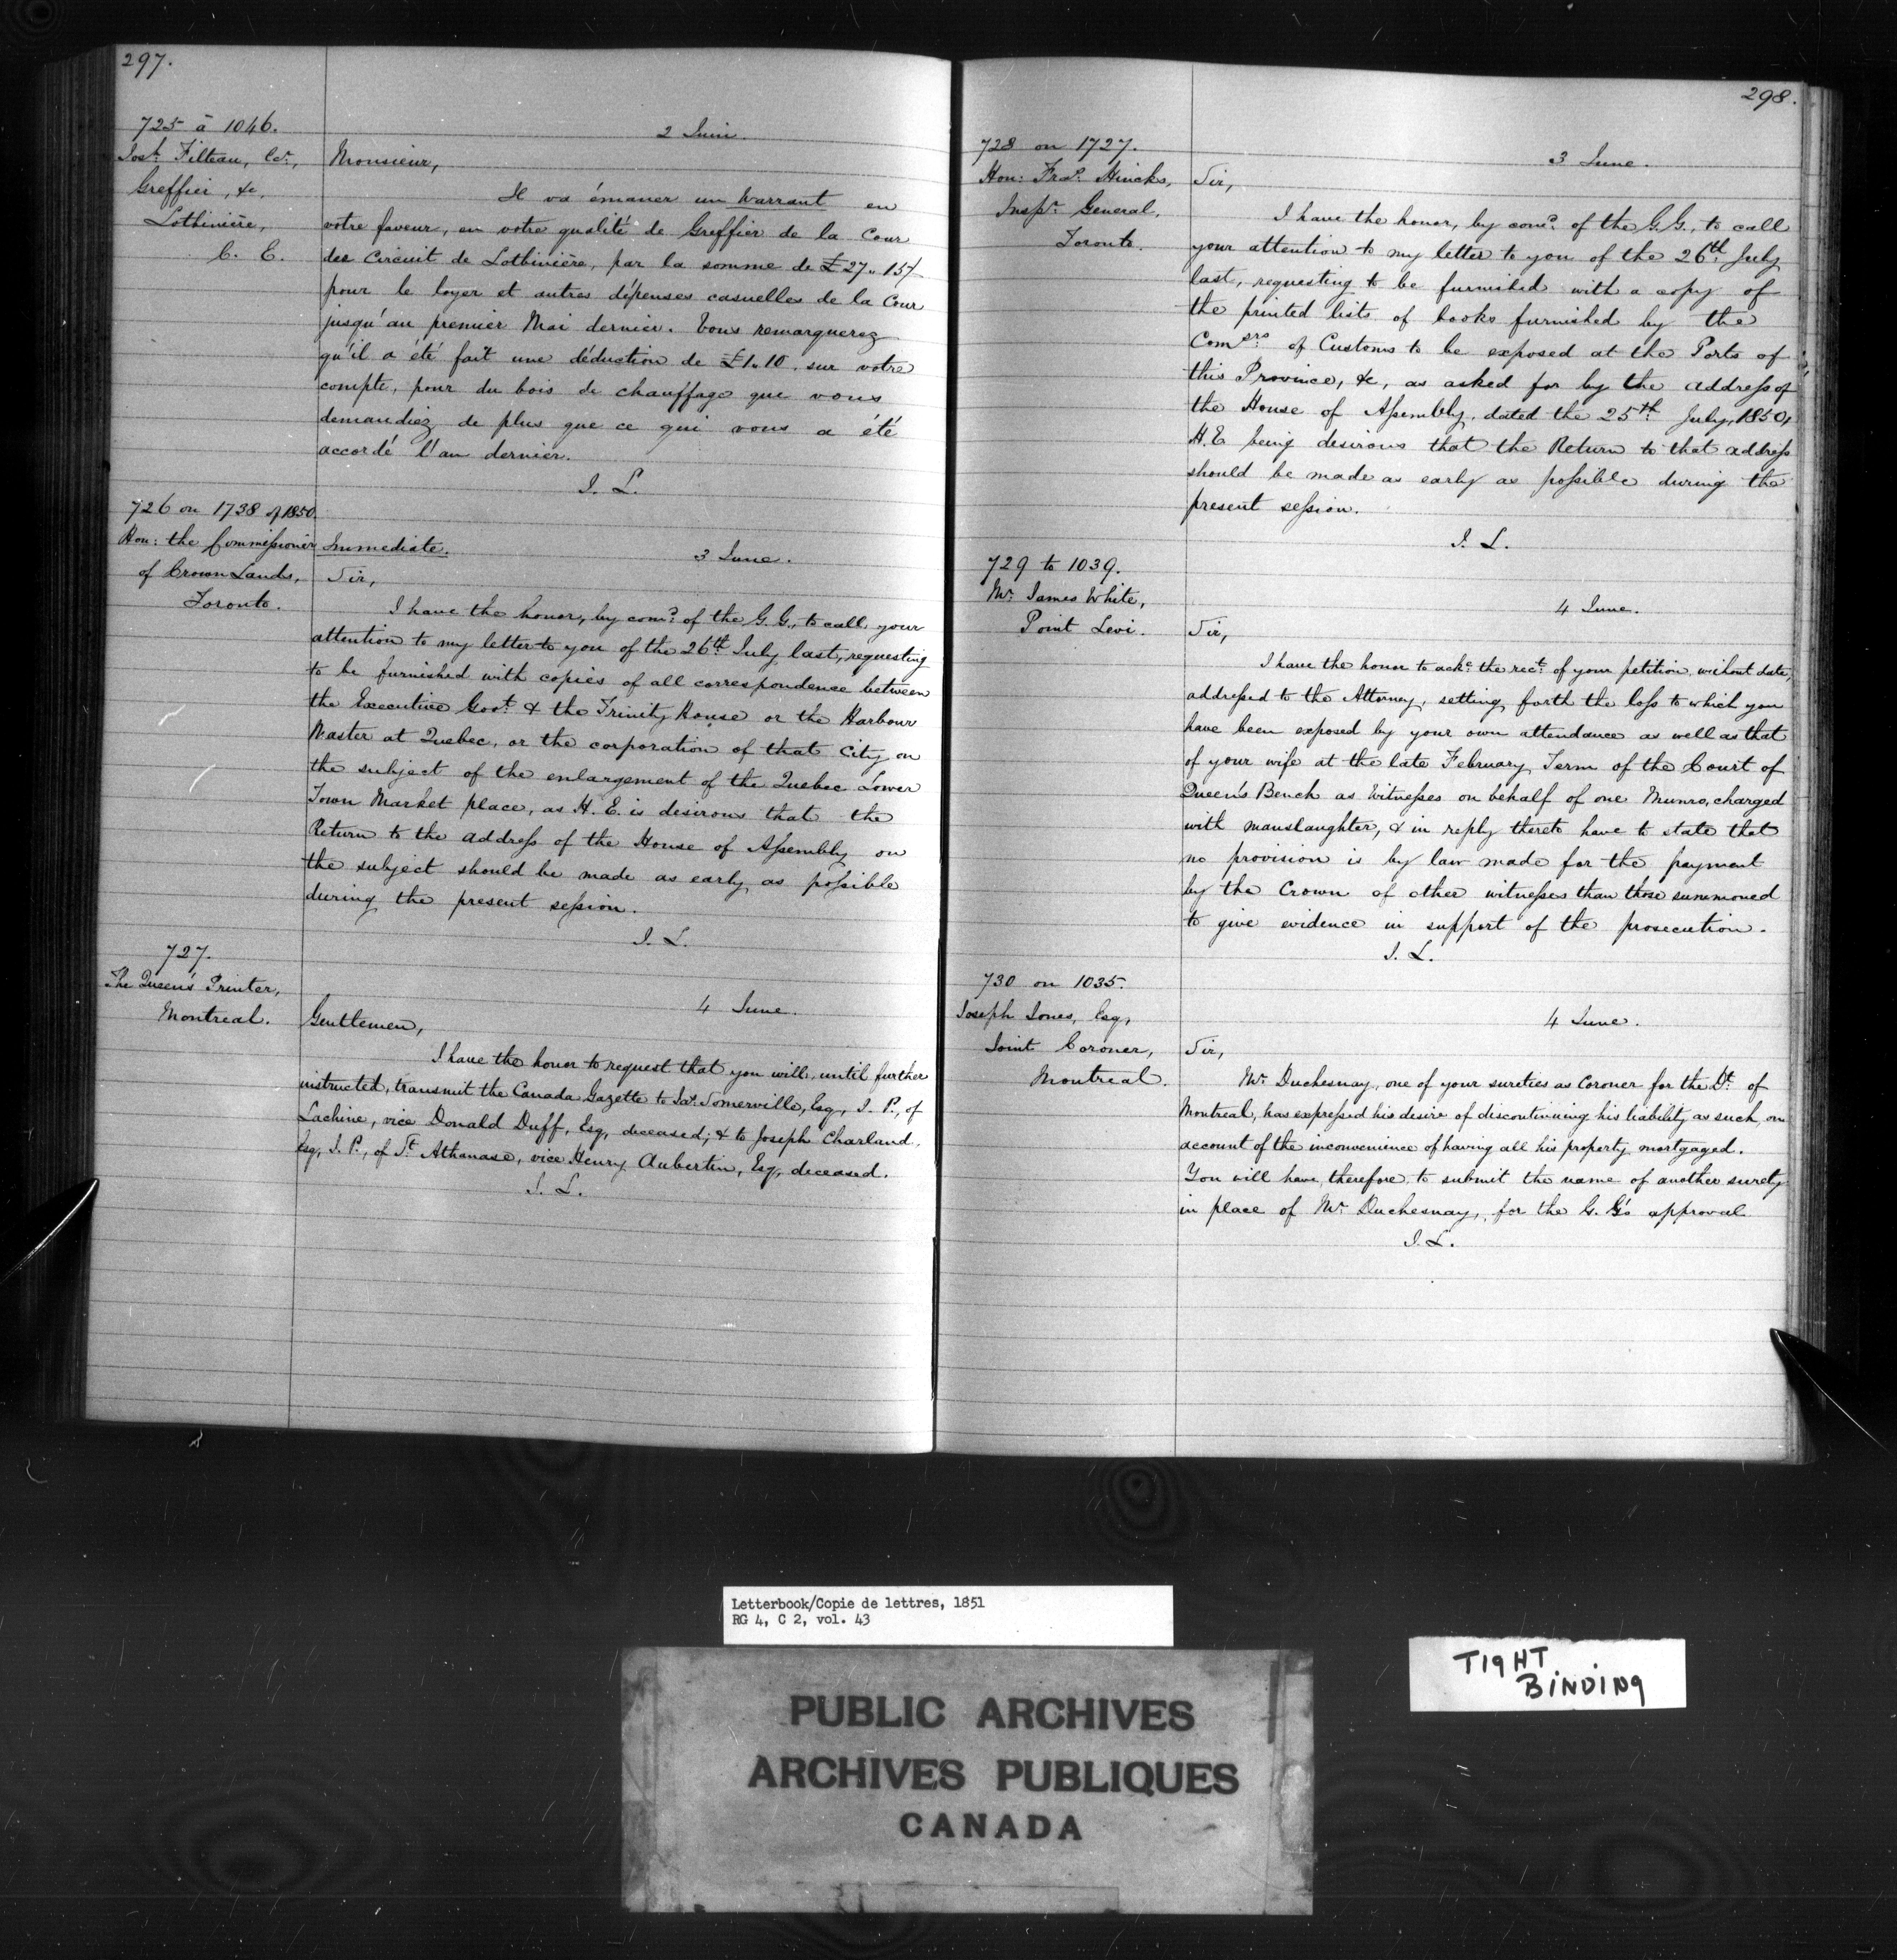 297.
725 à 1046.
Josh. Filteau, Er.,
Greffier, &c.
Lotbinière,
C. E.
2 Juin.
Monsieur,
Il va émaner un Warrant en
votre faveur, en votre qualité de Greffier de la Cour
de Circuit de Lotbinière, par la somme de £27.15/
pour le loyer et autres dépenses casuelles de la Cour
jusqu'au premier Mai dernier. Vous remarquerez
qu'il a été fait une déduction de £1.10. sur votre
compte, pour du bois de chauffage que vous
demandiez de plus que ce qui vous a été
accordé l'an dernier.
J. L.
726 on 1738 of 1850.
Hon: the Commissioner
of Crown Lands,
Toronto.
Immediate.
3 June.
Sir,
I have the honor, by comd. of the G.G., to call your
attention to my letter to you of the 26th July last, requesting
to be furnished with copies of all correspondence between
the Executive Govt. & the Trinity House or the Harbour
Master at Quebec, or the corporation of that City on
the subject of the enlargement of the Quebec Lower
Town Market place, as H. E. is desirous that the
Return to the address of the House of Assembly on
the subject should be made as early as possible
during the present session.
J. L.
727.
The Queen's Printer,
Montreal.
4 June.
Gentlemen,
I have the honor to request that you will, until further
instructed, transmit the Canada Gazette to Jas. Somerville, Esq., J. P., of
Lachine, vice Donald Duff, Esq, deceased; & to Joseph Charland,
Esq, J. P., of St. Athanase, vice Henry Aubertin, Esq, deceased.
J. L.
298.
728 on 1727.
Hon: Fras. Hincks,
Inspr. General,
Toronto.
3 June.
Sir,
I have the honor, by comd. of the G.G., to call
your attention to my letter to you of the 26th. July
last, requesting to be furnished with a copy of
the printed lists of books furnished by the
Comsrs. of Customs to be exposed at the Ports of
this Province, &c, as asked for by the address of
the House of Assembly, dated the 25th. July, 1850,
H.E being desirous that the Return to that address
should be made as early as possible during the
present session.
J. L.
729 to 1039.
Mr. James White,
Point Levi.
4 June.
Sir,
I have the honor to acke. the rect. of your petition, without date,
addressed to the Attorney, setting forth the loss to which you
have been exposed by your own attendance as well as that
of your wife at the late February Term of the Court of
Queen's Bench as Witnesses on behalf of one Munro, charged
with manslaughter, & in reply thereto have to state that
no provision is by law made for the payment
by the Crown of other witnesses than those summoned
to give evidence in support of the prosecution.
J. L.
730 on 1035.
Joseph Jones, Esq,
Joint Coroner,
Montreal.
4 June.
Sir,
Mr. Duchesnay, one of your sureties as Coroner for the Dt. of
Montreal, has expressed his desire of discontinuing his liability as such, on
account of the inconvenience of having all his property mortgaged.
You will have, therefore, to submit the name of another surety
in place of Mr. Duchesnay, for the G. G's approval
J. L.
Letterbook/Copie de lettres, 1851
RG 4, C 2, vol. 43
TIGHT
BINDING
PUBLIC ARCHIVES
ARCHIVES PUBLIQUES
CANADA